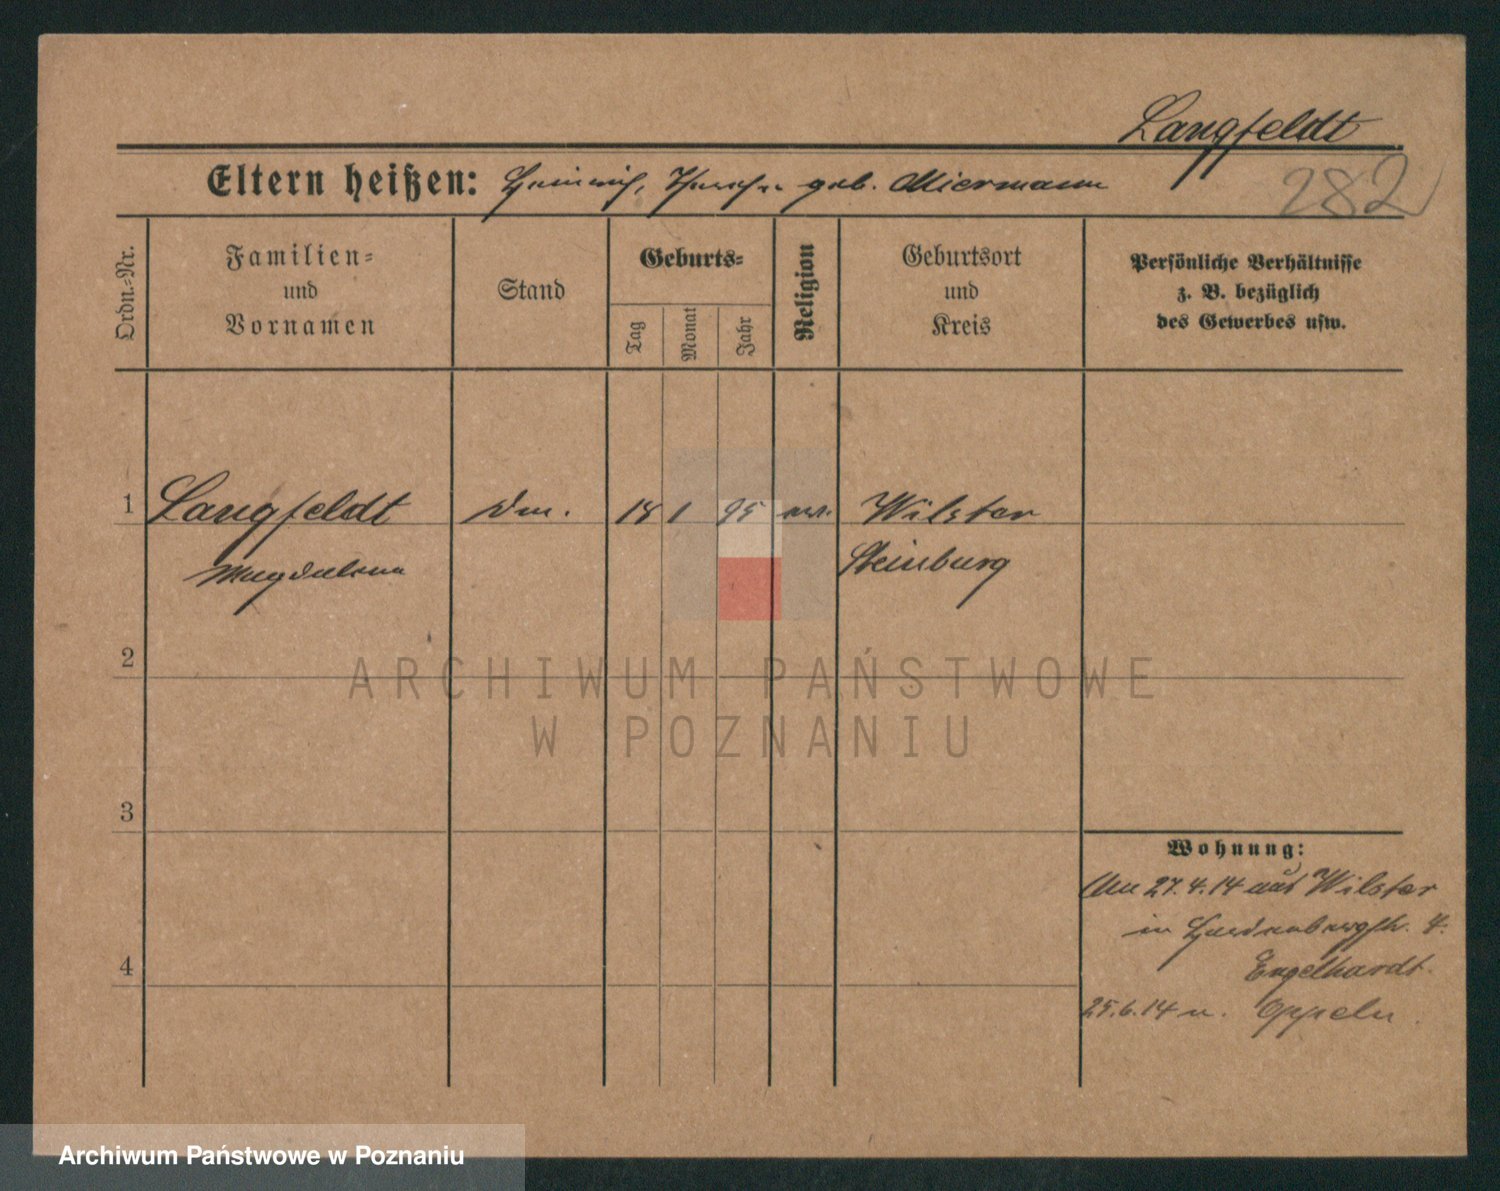 Langfeldt
Eltern heißen: Heinrich, geb. Miermann
282
Ordn.-Nr.
Familien-
und
Vornamen
Stand
Geburts-
Tag
Monat
Jahr
Religion
Geburtsort
und
Kreis
Persönliche Verhältnisse
z. B. bezüglich
des Gewerbes usw.
1 Langfeldt 1 95 Wilster
Magdalena Steinburg
2
ARCHIWUM PAŃSTWOWE
W POZNANIU
3
Wohnung:
27.4.14 aus Wilster
in Hardenbergstr. 4.
4
Engelhardt.
25.6.14 n. Oppeln.
Archiwum Państwowe w Poznaniu